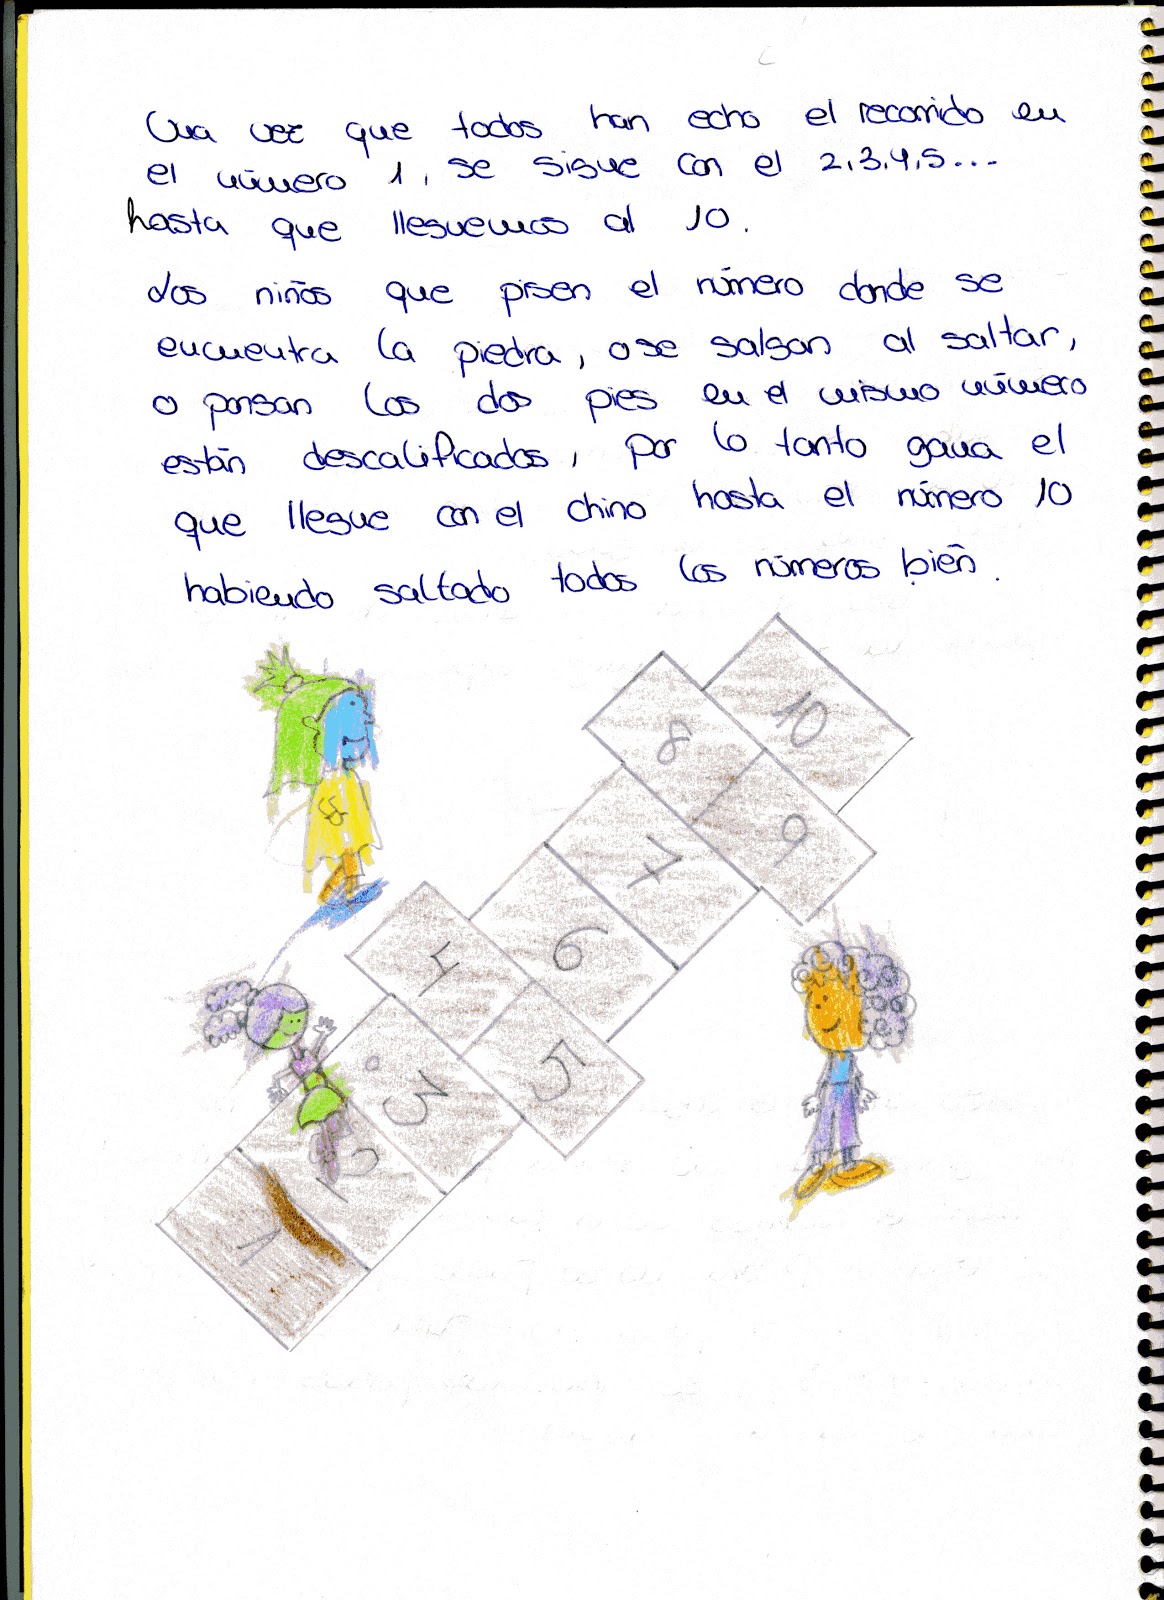 Una vez que todos han echo el recorrido en
el número 1, se sigue con el 2,3,4,5...
hasta que lleguemos al 10.
Los niños que pisen el número donde se
encuentra la piedra, o se salgan al saltar,
o pongan los dos pies en el mismo número
están descalificados, por lo tanto gana el
que llegue con el chino hasta el número 10
habiendo saltado todos los números bien.
10
8
9
7
6
4
5
3
2
1